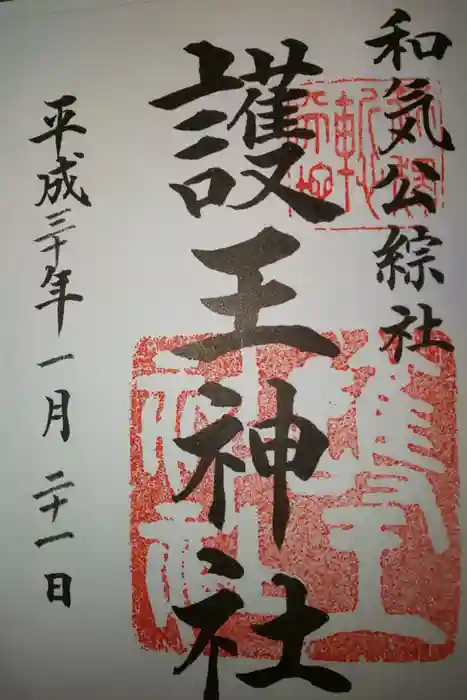 和気公綜社
護王神社
平成三十年一月二十一日